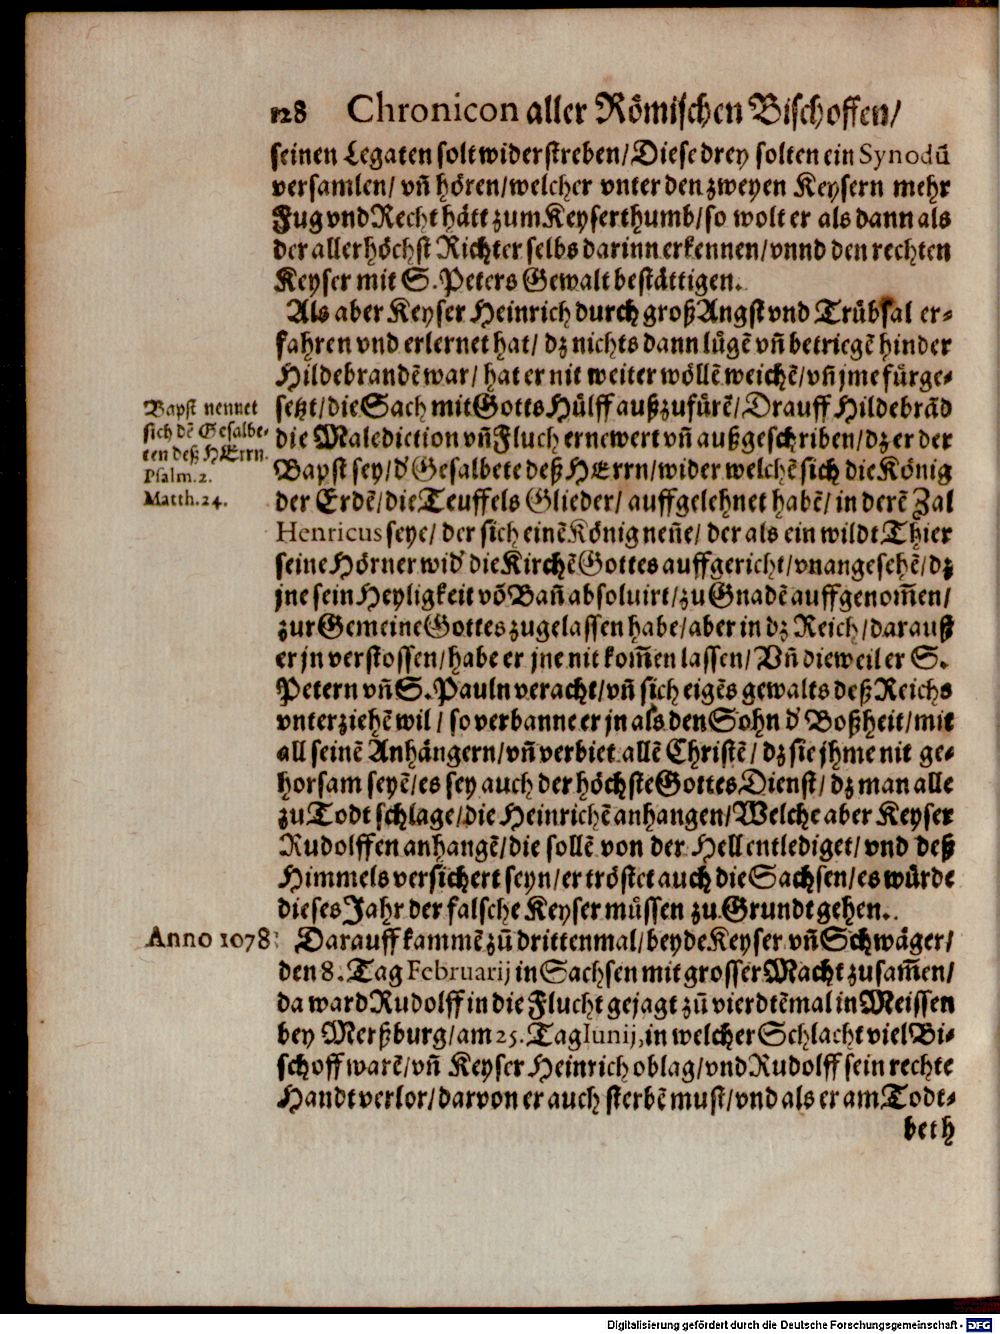 128 Chronicon aller Römischen Bischoffen/
seinen Legaten solt widerstreben/Diese drey solten ein Synodū
versamlen/ vñ hören/welcher vnter den zweyen Keysern mehr
Fug vnd Recht hätt zum Keyserthumb/so wolt er als dann als
der allerhöchst Richter selbs darinn erkennen/vnnd den rechten
Keyser mit S. Peters Gewalt bestättigen.
Als aber Keyser Heinrich durch groß Angst vnd Trübsal er-
fahren vnd erlernet hat/ dz nichts dann lügē vñ betriegē hinder
Hildebrandē war/ hat er nit weiter wöllē weichē/vñ jme fürge-
setzt/die Sach mit Gotts Hülff außzufürē/Drauff Hildebrād
die Malediction vñ Fluch ernewert vñ außgeschriben/dz er der
Bapst sey/d' Gesalbete deß HErrn/wider welchē sich die König
der Erdē/die Teuffels Glieder/ auffgelehnet habē/ in derē Zal
Henricus seye/ der sich einē König neñe/ der als ein wildt Thier
seine Hörner wid' die Kirchē Gottes auffgericht/vnangesehē/dz
jne sein Heyligkeit vō Bañ absoluirt/zu Gnadē auffgenom̃en/
zur Gemeine Gottes zugelassen habe/aber in dz Reich/darauß
er jn verstossen/habe er jne nit kom̃en lassen/ Vñ dieweil er S.
Petern vñ S. Pauln veracht/vñ sich eigēs gewalts deß Reichs
vnterziehē wil/ so verbanne er jn als den Sohn d' Boßheit/mit
all seinē Anhängern/vñ verbiet allē Christē/ dz sie jhme nit ge-
horsam seyē/es sey auch der höchste Gottes Dienst/ dz man alle
zu Todt schlage/die Heinrichē anhangen/Welche aber Keyser
Rudolffen anhangē/die sollē von der Hell entlediget/ vnd deß
Himmels versichert seyn/er tröstet auch die Sachsen/es würde
dieses Jahr der falsche Keyser müssen zu Grundt gehen.
Darauff kammē zū drittenmal/beyde Keyser vñ Schwäger/
den 8. Tag Februarij in Sachsen mit grosser Macht zusam̃en/
da ward Rudolff in die Flucht gejagt zū vierdtēmal in Meissen
bey Merßburg/am 25. Tag Iunij, in welcher Schlacht viel Bi-
schoff warē/vñ Keyser Heinrich oblag/vnd Rudolff sein rechte
Handt verlor/darvon er auch sterbē must/vnd als er am Todt-
beth
Bapst nennet
sich dē Gesalbe-
ten deß HErrn.
Psalm.2.
Matth.24.
Anno 1078.
Digitalisierung gefördert durch die Deutsche Forschungsgemeinschaft - DFG